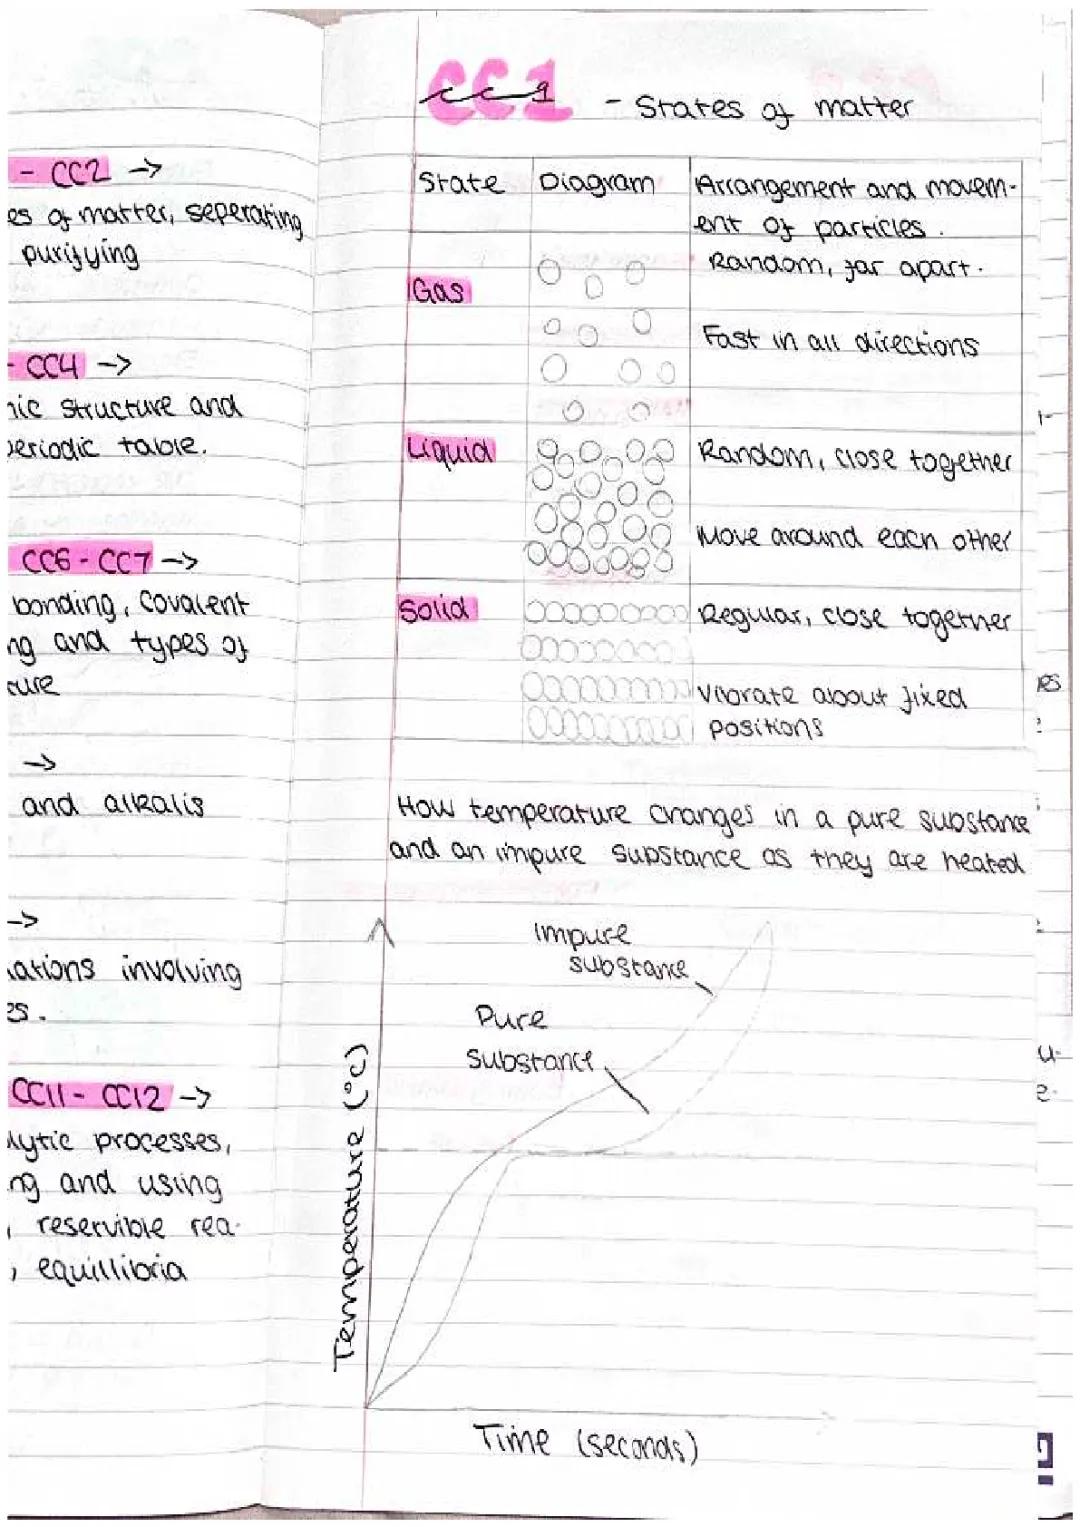 - CC2 →
es of matter, seperating
purifying
- CC4 →
nic structure and
periodic table.
CC6 - CC7 →
bonding, covalent
ng and types of
ture
→
and alkalis
→
ations involving
es.
CC11 - CC12 →
lytic processes,
ng and using
, reservible rea-
, equillibria
CC1 - States of matter
State Diagram Arrangement and movem-
ent of particles.
Gas Random, far apart.
Fast in all directions
Liquid Random, close together
Move around each other
Solid Regular, close together
Vibrate about fixed
positions
How temperature changes in a pure substance
and an impure substance as they are heated
Impure
substance
Pure
substance
Temperature (°C)
Time (seconds)